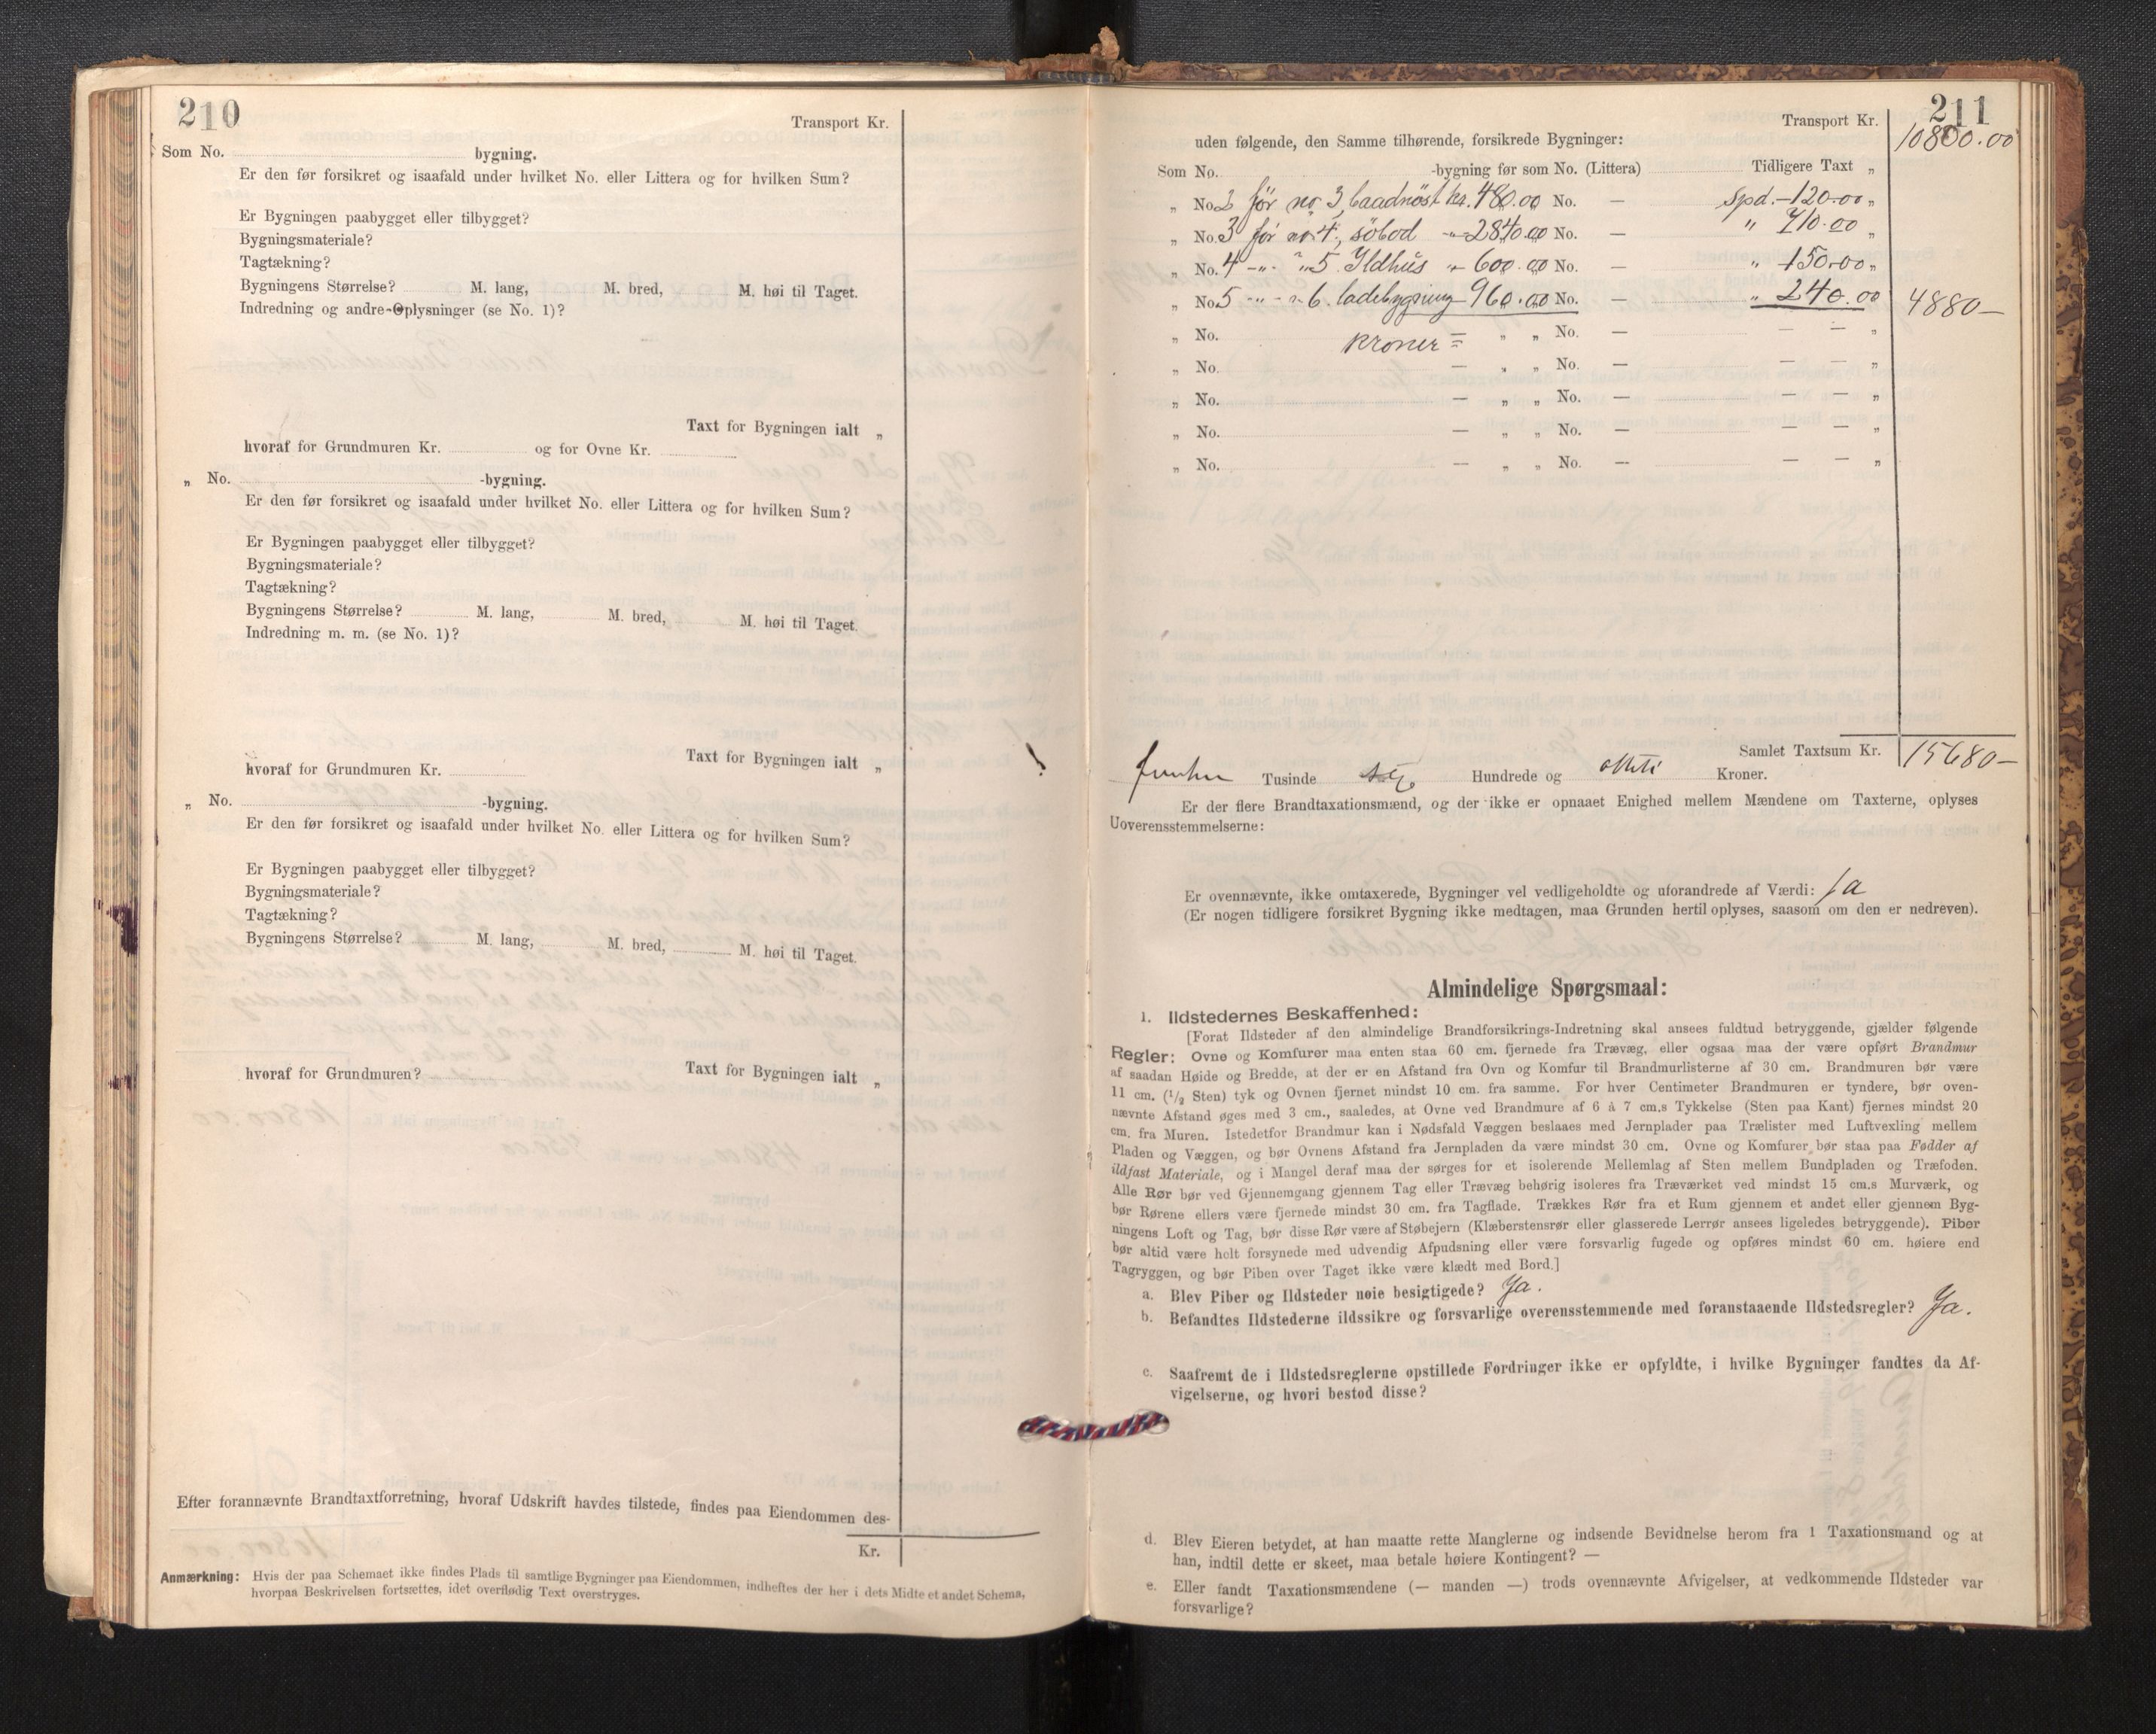 210
Transport Kr.
Som No. bygning.
Er den før forsikret og isaafald under hvilket No. eller Littera og for hvilken Sum?
Er Bygningen paabygget eller tilbygget?
Bygningsmateriale?
Tagtækning?
Bygningens Størrelse? M. lang, M. bred, M. høi til Taget.
Indredning og andre Oplysninger (se No. 1)?
Taxt for Bygningen ialt „
hvoraf for Grundmuren Kr. og for Ovne Kr.
„ No. -bygning.
Er den før forsikret og isaafald under hvilket No. eller Littera og for hvilken Sum?
Er Bygningen paabygget eller tilbygget?
Bygningsmateriale?
Tagtækning?
Bygningens Størrelse? M. lang, M. bred, M. høi til Taget.
Indredning m. m. (se No. 1)?
Taxt for Bygningen ialt „
hvoraf for Grundmuren Kr.
„ No. -bygning.
Er den før forsikret og isaafald under hvilket No. eller Littera og for hvilken Sum?
Er Bygningen paabygget eller tilbygget?
Bygningsmateriale?
Tagtækning?
Bygningens Størrelse? M. lang, M. bred, M. høi til Taget.
hvoraf for Grundmuren? Taxt for Bygningen ialt „
Efter forannævnte Brandtaxtforretning, hvoraf Udskrift havdes tilstede, findes paa Eiendommen des-
Kr.
Anmærkning: Hvis der paa Schemaet ikke findes Plads til samtlige Bygninger paa Eiendommen, indheftes der her i dets Midte et andet Schema,
hvorpaa Beskrivelsen fortsættes, idet overflødig Text overstryges.
211
Transport Kr. 10800.00
uden følgende, den Samme tilhørende, forsikrede Bygninger:
Som No. -bygning før som No. (Littera) Tidligere Taxt „
„ No. 2 før no 3, baadnöst kr. 480.00 No. — Spd. - 120.00 „
„ No. 3 før no 4, söbod -„- 2840.00 No. — „ 710.00 „
„ No. 4 -„- „ 5. Ildhus „ 600.00 No. — „ 150.00 „
„ No. 5 -„- „ 6. ladebygning 960.00 No. — „ 240.00 4880 —
„ No. kroner = „ „ No. — — — „
„ No. — „ „ No. — — — „
„ No. — „ „ No. — — — „
„ No. — „ „ No. — — — „
„ No. — „ „ No. — — — „
Samlet Taxtsum Kr. 15680 —
femten Tusinde sex Hundrede og otteti Kroner.
Er der flere Brandtaxationsmænd, og der ikke er opnaaet Enighed mellem Mændene om Taxterne, oplyses
Uoverensstemmelserne:
Er ovennævnte, ikke omtaxerede, Bygninger vel vedligeholdte og uforandrede af Værdi: Ja
(Er nogen tidligere forsikret Bygning ikke medtagen, maa Grunden hertil oplyses, saasom om den er nedreven).
Almindelige Spørgsmaal:
1. Ildstedernes Beskaffenhed:
[Forat Ildsteder af den almindelige Brandforsikrings-Indretning skal ansees fuldtud betryggende, gjælder følgende
Regler: Ovne og Komfurer maa enten staa 60 cm. fjernede fra Trævæg, eller ogsaa maa der være opført Brandmur
af saadan Høide og Bredde, at der er en Afstand fra Ovn og Komfur til Brandmurlisterne af 30 cm. Brandmuren bør være
11 cm. (½ Sten) tyk og Ovnen fjernet mindst 10 cm. fra samme. For hver Centimeter Brandmuren er tyndere, bør oven-
nævnte Afstand øges med 3 cm., saaledes, at Ovne ved Brandmure af 6 à 7 cm.s Tykkelse (Sten paa Kant) fjernes mindst 20
cm. fra Muren. Istedetfor Brandmur kan i Nødsfald Væggen beslaaes med Jernplader paa Trælister med Luftvexling mellem
Pladen og Væggen, og bør Ovnens Afstand fra Jernpladen da være mindst 30 cm. Ovne og Komfurer bør staa paa Fødder af
ildfast Materiale, og i Mangel deraf maa der sørges for et isolerende Mellemlag af Sten mellem Bundpladen og Træfoden.
Alle Rør bør ved Gjennemgang gjennem Tag eller Trævæg behørig isoleres fra Træværket ved mindst 15 cm.s Murværk, og
bør Rørene ellers være fjernede mindst 30 cm. fra Tagflade. Trækkes Rør fra et Rum gjennem et andet eller gjennem Byg-
ningens Loft og Tag, bør disse Rør være af Støbejern (Klæberstensrør eller glasserede Lerrør ansees ligeledes betryggende). Piber
bør altid være helt forsynede med udvendig Afpudsning eller være forsvarlig fugede og opføres mindst 60 cm. høiere end
Tagryggen, og bør Piben over Taget ikke være klædt med Bord.]
a. Blev Piber og Ildsteder nøie besigtigede? Ja.
b. Befandtes Ildstederne ildssikre og forsvarlige overensstemmende med foranstaaende Ildstedsregler? Ja.
c. Saafremt de i Ildstedsreglerne opstillede Fordringer ikke er opfyldte, i hvilke Bygninger fandtes da Af-
vigelserne, og hvori bestod disse?
d. Blev Eieren betydet, at han maatte rette Manglerne og indsende Bevidnelse herom fra 1 Taxationsmand og at
han, indtil dette er skeet, maa betale høiere Kontingent? —
e. Eller fandt Taxationsmændene (— manden —) trods ovennævnte Afvigelser, at vedkommende Ildsteder var
forsvarlige?